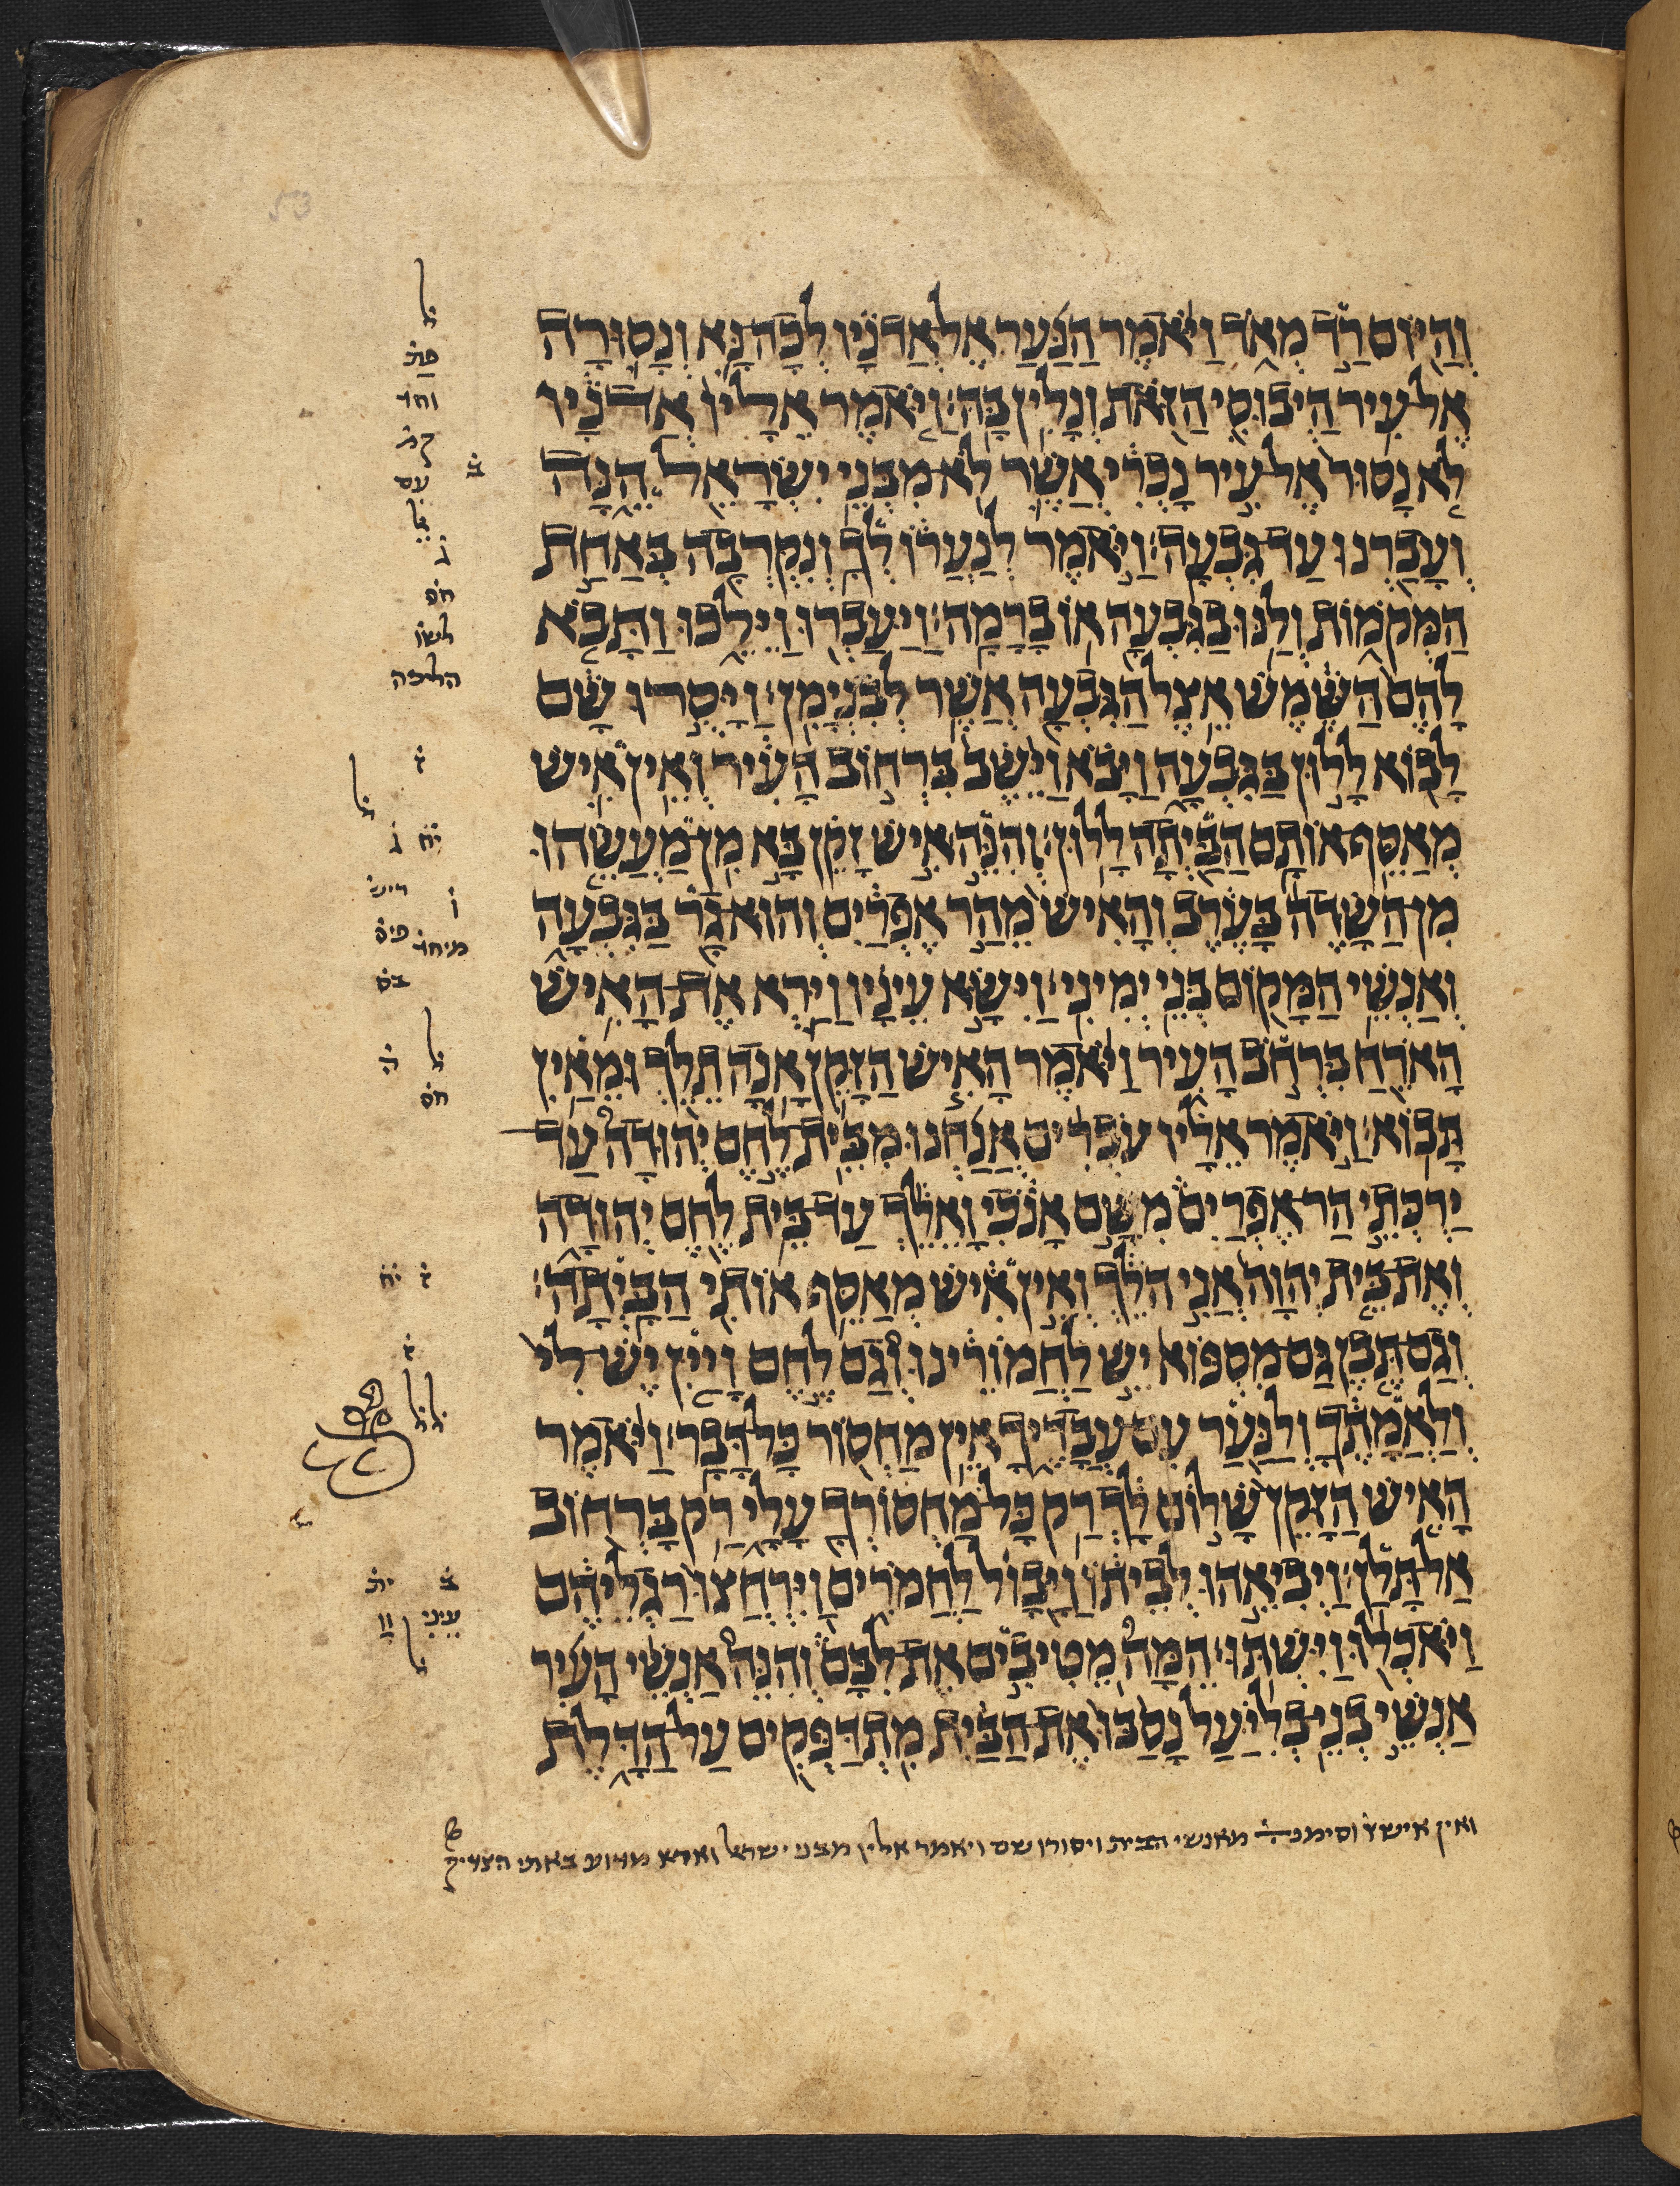 וְהַיּוֹם רַד מְאֹד וַיֹּאמֶר הַנַּעַר אֶל אֲדֹנָיו לְכָה נָּא וְנָסוּרָה
אֶל עִיר הַיְבוּסִי הַזֹּאת וְנָלִין בָּהּ׃ וַיֹּאמֶר אֵלָיו אֲדֹנָיו
לֹא נָסוּר אֶל עִיר נָכְרִי אֲשֶׁר לֹא מִבְּנֵי יִשְׂרָאֵל הֵנָּה
וְעָבַרְנוּ עַד גִּבְעָה׃ וַיֹּאמֶר לְנַעֲרוֹ לְךָ וְנִקְרְבָה בְּאַחַת
הַמְּקֹמוֹת וְלַנּוּ בַגִּבְעָה אוֹ בָרָמָה׃ וַיַּעַבְרוּ וַיֵּלֵכוּ וַתָּבֹא
לָהֶם הַשֶּׁמֶשׁ אֵצֶל הַגִּבְעָה אֲשֶׁר לְבִנְיָמִן׃ וַיָּסֻרוּ שָׁם
לָבוֹא לָלוּן בַּגִּבְעָה וַיָּבֹא וַיֵּשֶׁב בִּרְחוֹב הָעִיר וְאֵין אִישׁ
מְאַסֵּף אוֹתָם הַבַּיְתָה לָלוּן׃ וְהִנֵּה אִישׁ זָקֵן בָּא מִן מַעֲשֵׂהוּ
מִן הַשָּׂדֶה בָּעֶרֶב וְהָאִישׁ מֵהַר אֶפְרַיִם וְהוּא גָר בַּגִּבְעָה
וְאַנְשֵׁי הַמָּקוֹם בְּנֵי יְמִינִי׃ וַיִּשָּׂא עֵינָיו וַיַּרְא אֶת הָאִישׁ
הָאֹרֵחַ בִּרְחֹב הָעִיר וַיֹּאמֶר הָאִישׁ הַזָּקֵן אָנָה תֵלֵךְ וּמֵאַיִן
תָּבוֹא׃ וַיֹּאמֶר אֵלָיו עֹבְרִים אֲנַחְנוּ מִבֵּית לֶחֶם יְהוּדָה עַד
יַרְכְּתֵי הַר אֶפְרַיִם מִשָּׁם אָנֹכִי וָאֵלֵךְ עַד בֵּית לֶחֶם יְהוּדָה
וְאֶת בֵּית יְהוָה אֲנִי הֹלֵךְ וְאֵין אִישׁ מְאַסֵּף אוֹתִי הַבָּיְתָה׃
וְגַם תֶּבֶן גַּם מִסְפּוֹא יֵשׁ לַחֲמוֹרֵינוּ וְגַם לֶחֶם וָיַיִן יֶשׁ לִי
וְלַאֲמָתֶךָ וְלַנַּעַר עִם עֲבָדֶיךָ אֵין מַחְסוֹר כָּל דָּבָר׃ וַיֹּאמֶר
הָאִישׁ הַזָּקֵן שָׁלוֹם לָךְ רַק כָּל מַחְסוֹרְךָ עָלָי רַק בָּרְחוֹב
אַל תָּלַן׃ וַיְבִיאֵהוּ לְבֵיתוֹ וַיָּבוֹל לַחֲמֹרִים וַיִּרְחֲצוּ רַגְלֵיהֶם
וַיֹּאכְלוּ וַיִּשְׁתּוּ׃ הֵמָּה מֵטִיבִים אֶת לִבָּם וְהִנֵּה אַנְשֵׁי הָעִיר
אַנְשֵׁי בְנֵי בְלִיַּעַל נָסַבּוּ אֶת הַבַּיִת מִתְדַּפְּקִים עַל הַדָּלֶת
ואין איש וסימנ מאנשי הבית ויסורו שם ויאמר אליו מבני ישראל מדוע באתי
וחד
עם
לשו
הליכה
מיחד
עיני